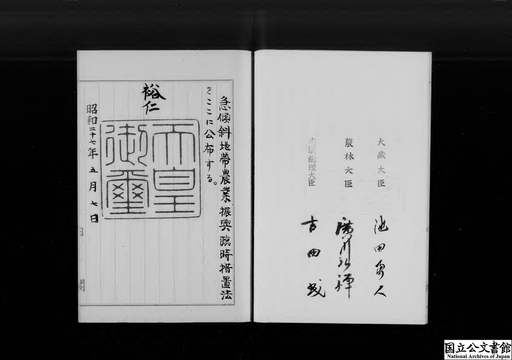 急傾斜地帯農業振興臨時措置法
をここに公布する。
裕仁
天皇
御璽
昭和二十七年五月七日
大蔵大臣
池田勇人
農林大臣
廣川弘禅
内閣総理大臣
吉田茂
国立公文書館
National Archives of Japan